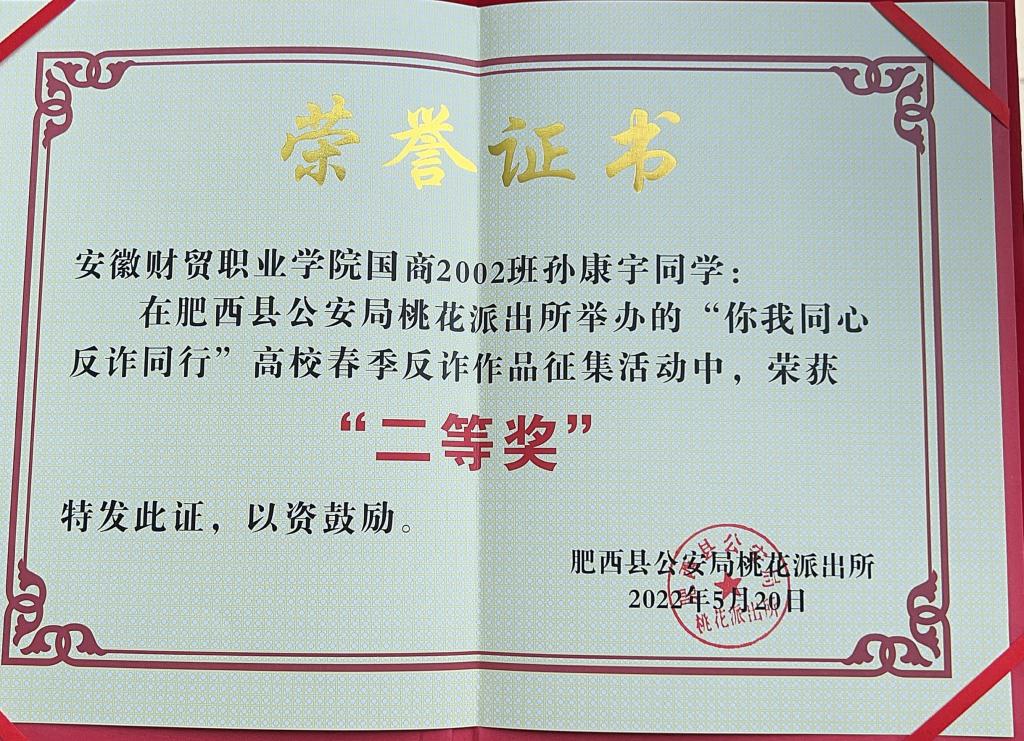 荣誉证书
安徽财贸职业学院国商2002班孙康宇同学：
在肥西县公安局桃花派出所举办的“你我同心
反诈同行”高校春季反诈作品征集活动中，荣获
“二等奖”
特发此证，以资鼓励。
肥西县公安局桃花派出所
2022年5月20日
肥西县公安局
桃花派出所